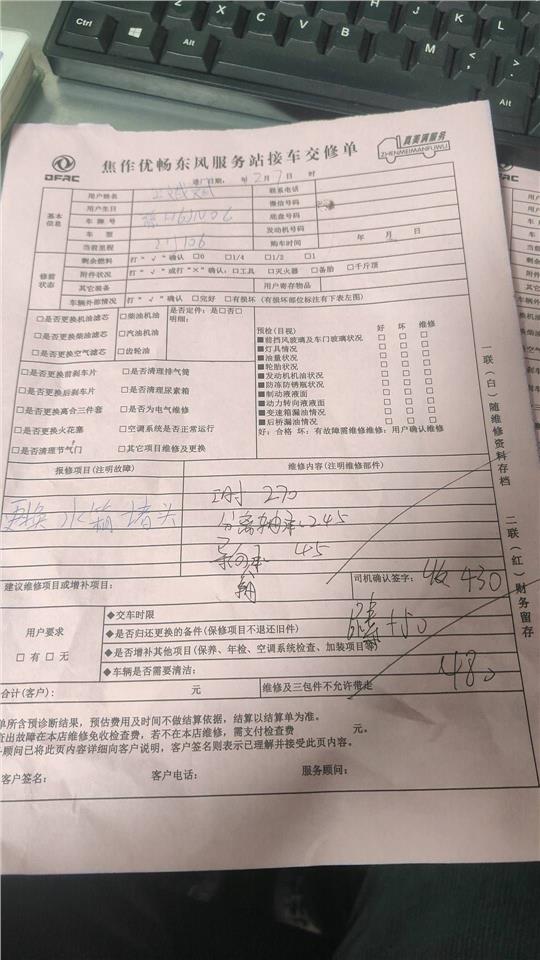 Ctrl
Alt
Z
X
C
V
B
N
M
Alt
DFAC
焦作优畅东风服务站接车交修单
真美满服务
ZHENMEIMANFUWU
进厂日期: 年2月7日 时
基本信息
用户姓名
联系电话
用户生日
微信号码
车牌号
底盘号码
车型
发动机号码
当前里程
购车时间 年 月 日
修前状态
剩余燃料 打“√”确认 □0 □1/4 □1/2 □1
附件状况 打“√”或打“×”确认:□工具 □灭火器 □备胎 □千斤顶
其它装备 用户寄存物品
车辆外部情况 打“√”确认 □完好 □有损坏（有损坏部位标注有下表左图）
□是否更换机油滤芯 □柴油机油 是否定件: 是□否□
□是否更换柴油滤芯 □汽油机油 明细:
□是否更换空气滤芯 □齿轮油
□是否更换前刹车片 □是否清理排气筒
□是否更换后刹车片 □是否清理尿素箱
□是否更换离合三件套 □是否为电气维修
□是否更换火花塞 □空调系统是否正常运行
□是否清理节气门 □其它项目维修及更换
预检(目视) 好 坏 维修
■前挡风玻璃及车门玻璃状况 □ □ □
■灯具情况 □ □ □
■油量状况 □ □ □
■轮胎状况 □ □ □
■发动机机油状况 □ □ □
■防冻防锈瓶状况 □ □ □
■制动液液面 □ □ □
■动力转向液液面 □ □ □
■变速箱漏油情况 □ □ □
■后桥漏油情况 □ □ □
好: 合格 坏: 有故障需维修维修: 用户确认维修
报修项目(注明故障) 维修内容(注明维修部件)
更换水箱堵头
270
分离轴承245
45
建议维修项目或增补项目:
司机确认签字: 收430
用户要求
□有□无
◆交车时限
◆是否归还更换的备件(保修项目不退还旧件)
◆是否增补其他项目(保养、年检、空调系统检查、加装项目等)
◆车辆是否需要清洁:
+50
480
合计(客户): 元 维修及三包件不允许带走
单所含预诊断结果，预估费用及时间不做结算依据，结算以结算单为准。
查出故障在本店维修免收检查费，若不在本店维修，需支付检查费 元。
务顾问已将此页内容详细向客户说明，客户签名则表示已理解并接受此页内容。
客户签名: 客户电话: 服务顾问:
一联(白)随维修资料存档
二联(红)财务留存